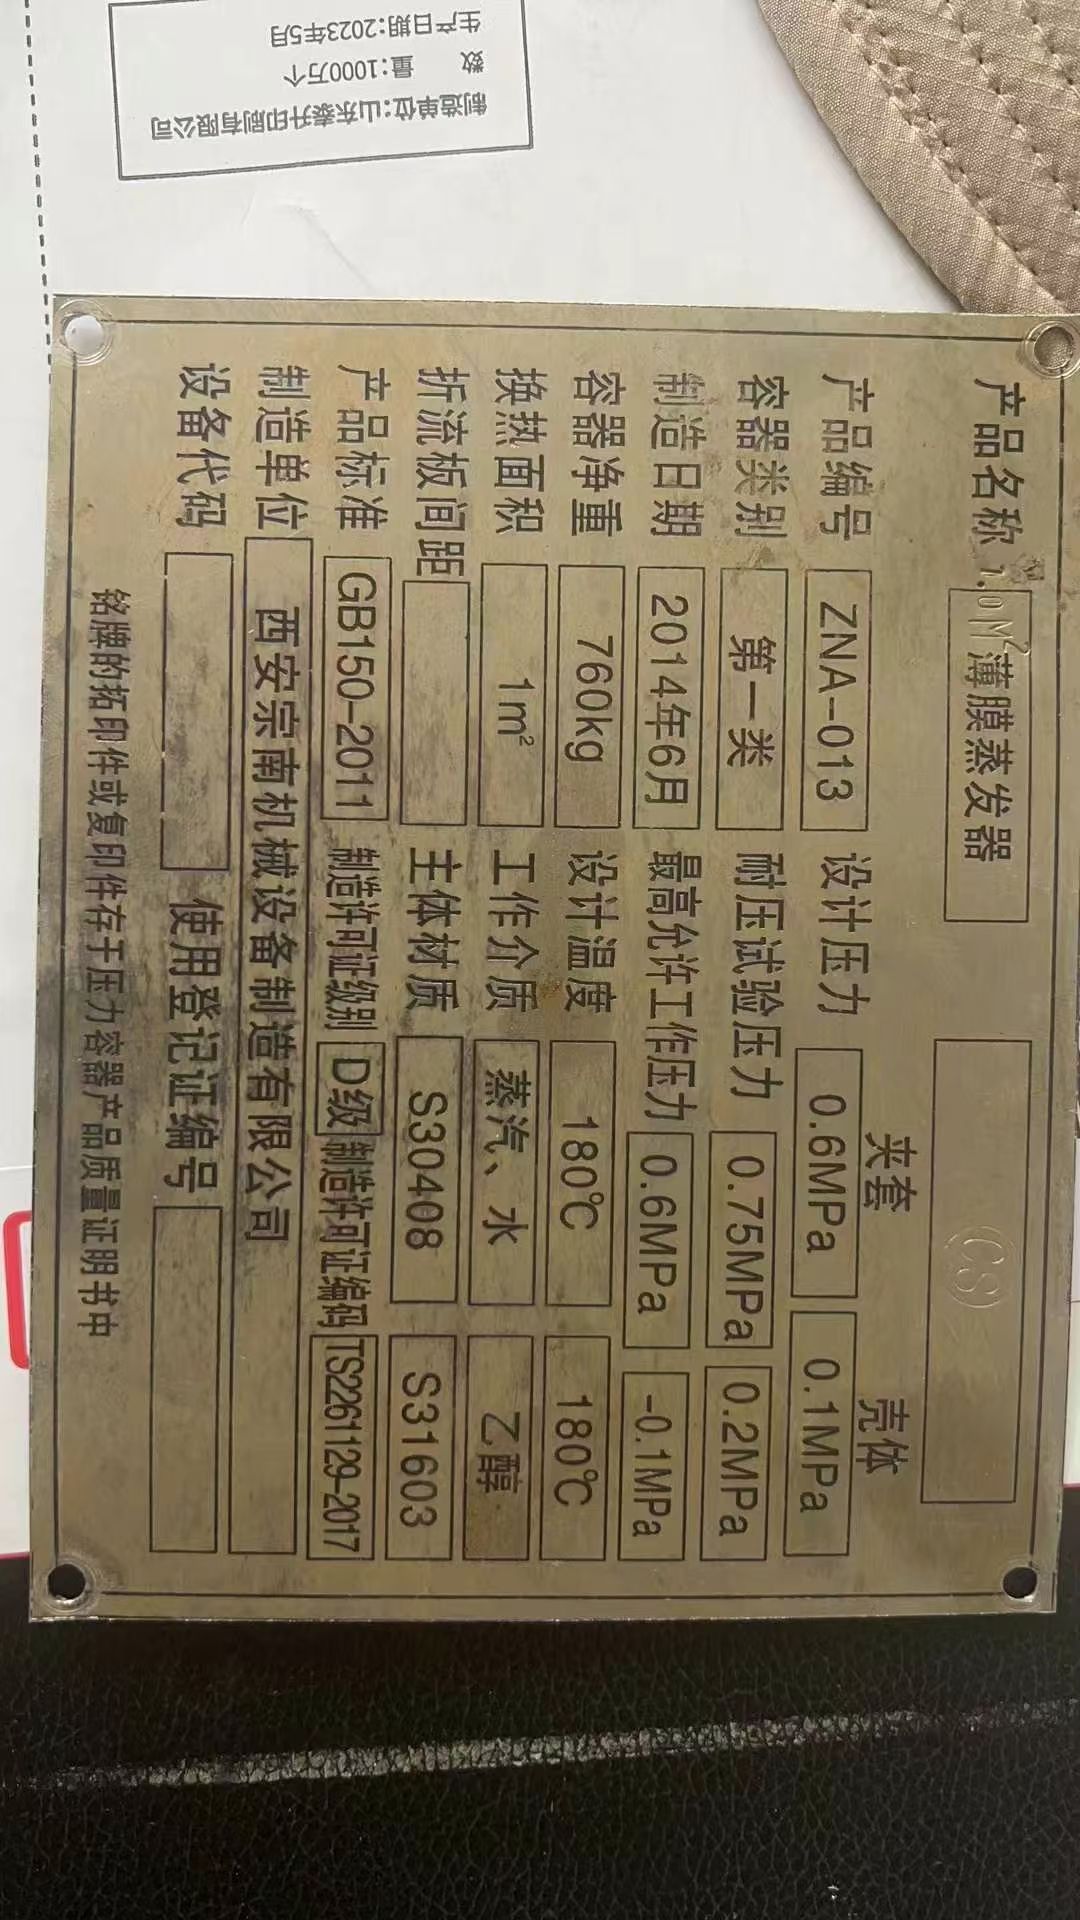 生产日期:2023年5月
数 量:1000万个
制造单位:山东泰升印刷有限公司
产品名称 1.0M²薄膜蒸发器
夹套 壳体
产品编号 ZNA-013 设计压力 0.6MPa 0.1MPa
容器类别 第一类 耐压试验压力 0.75MPa 0.2MPa
制造日期 2014年6月 最高允许工作压力 0.6MPa -0.1MPa
容器净重 760kg 设计温度 180℃ 180℃
换热面积 1m² 工作介质 蒸汽、水 乙醇
折流板间距 主体材质 S30408 S31603
产品标准 GB150-2011 制造许可证级别 D级 制造许可证编码 TS2261129-2017
制造单位 西安宗南机械设备制造有限公司
设备代码 使用登记证编号
铭牌的拓印件或复印件存于压力容器产品质量证明书中